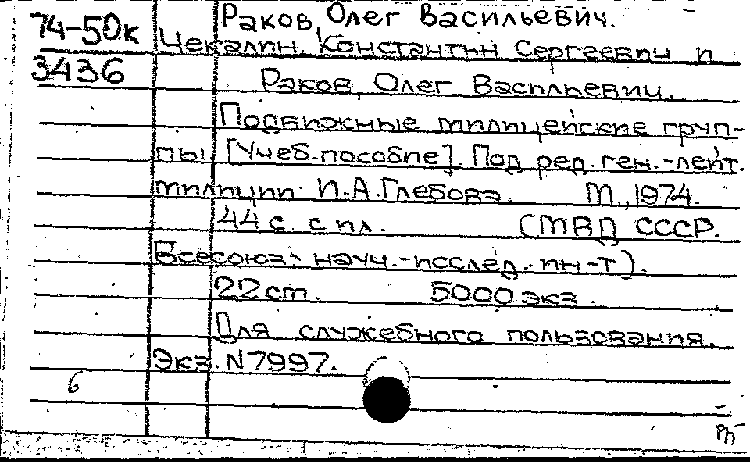 Раков, Олег Васильевич.
74-50к
Чекалин, Константин Сергеевич и
3436
Раков, Олег Васильевич.
Подвижные милицейские груп-
пы. [Учеб. пособие]. Под ред. ген.-лейт.
милиции И.А.Глебова. М., 1974.
44 с. с ил. (МВД СССР.
Всесоюз. науч.-исслед. ин-т).
22 см. 5000 экз.
Для служебного пользования.
Экз. N 7997.
6